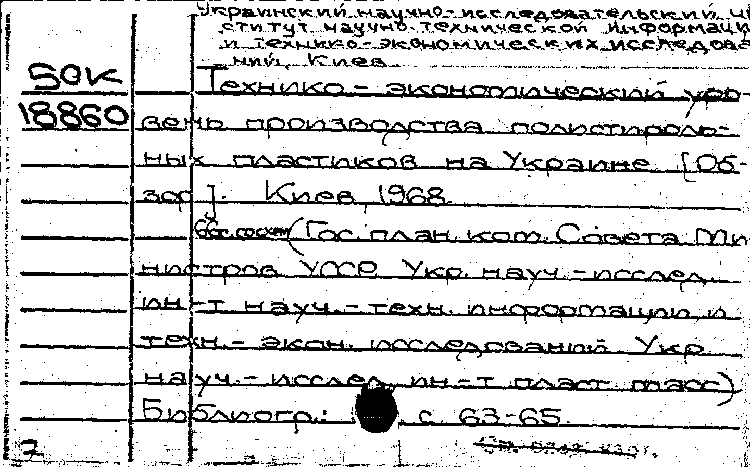 Украинский научно-исследовательский ин
ститут научно-технической информаци
и технико-экономических исследова
ний, Киев
50К Технико-экономический уро-
18860 вень производства полистироль-
ных пластиков на Украине [Об-
зор]. Киев, 1968
66с. (Гос. план. ком. Совета Ми
нистров УССР. Укр. науч.-исслед.
ин-т науч.-техн. информации и
техн.-экон. исследований. Укр.
науч.-исслед. ин-т пласт. масс)
Библиогр.: с. 63-65